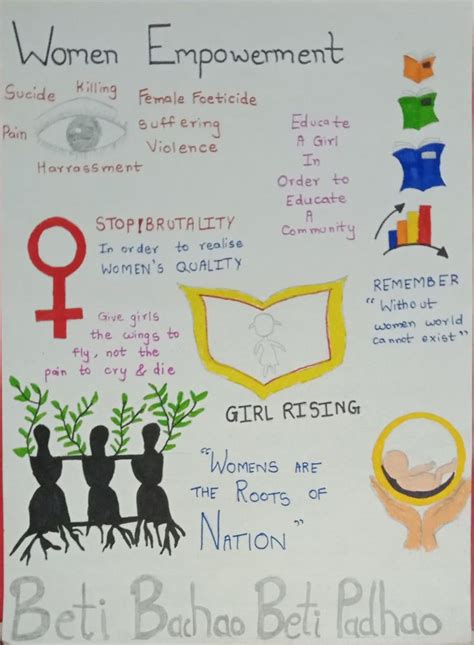 Women Empowerment
Sucide
Killing
Pain
Harrassment
Female Foeticide
Suffering
Violence
Educate
A Girl
In
Order to
Educate
A
Community
STOP!BRUTALITY
In order to realise
WOMEN'S QUALITY
Give girls
the wings to
fly, not the
pain to cry & die
REMEMBER
"Without
women world
cannot exist"
GIRL RISING
"WOMENS ARE
THE ROOTS OF
NATION"
Beti Bachao Beti Padhao